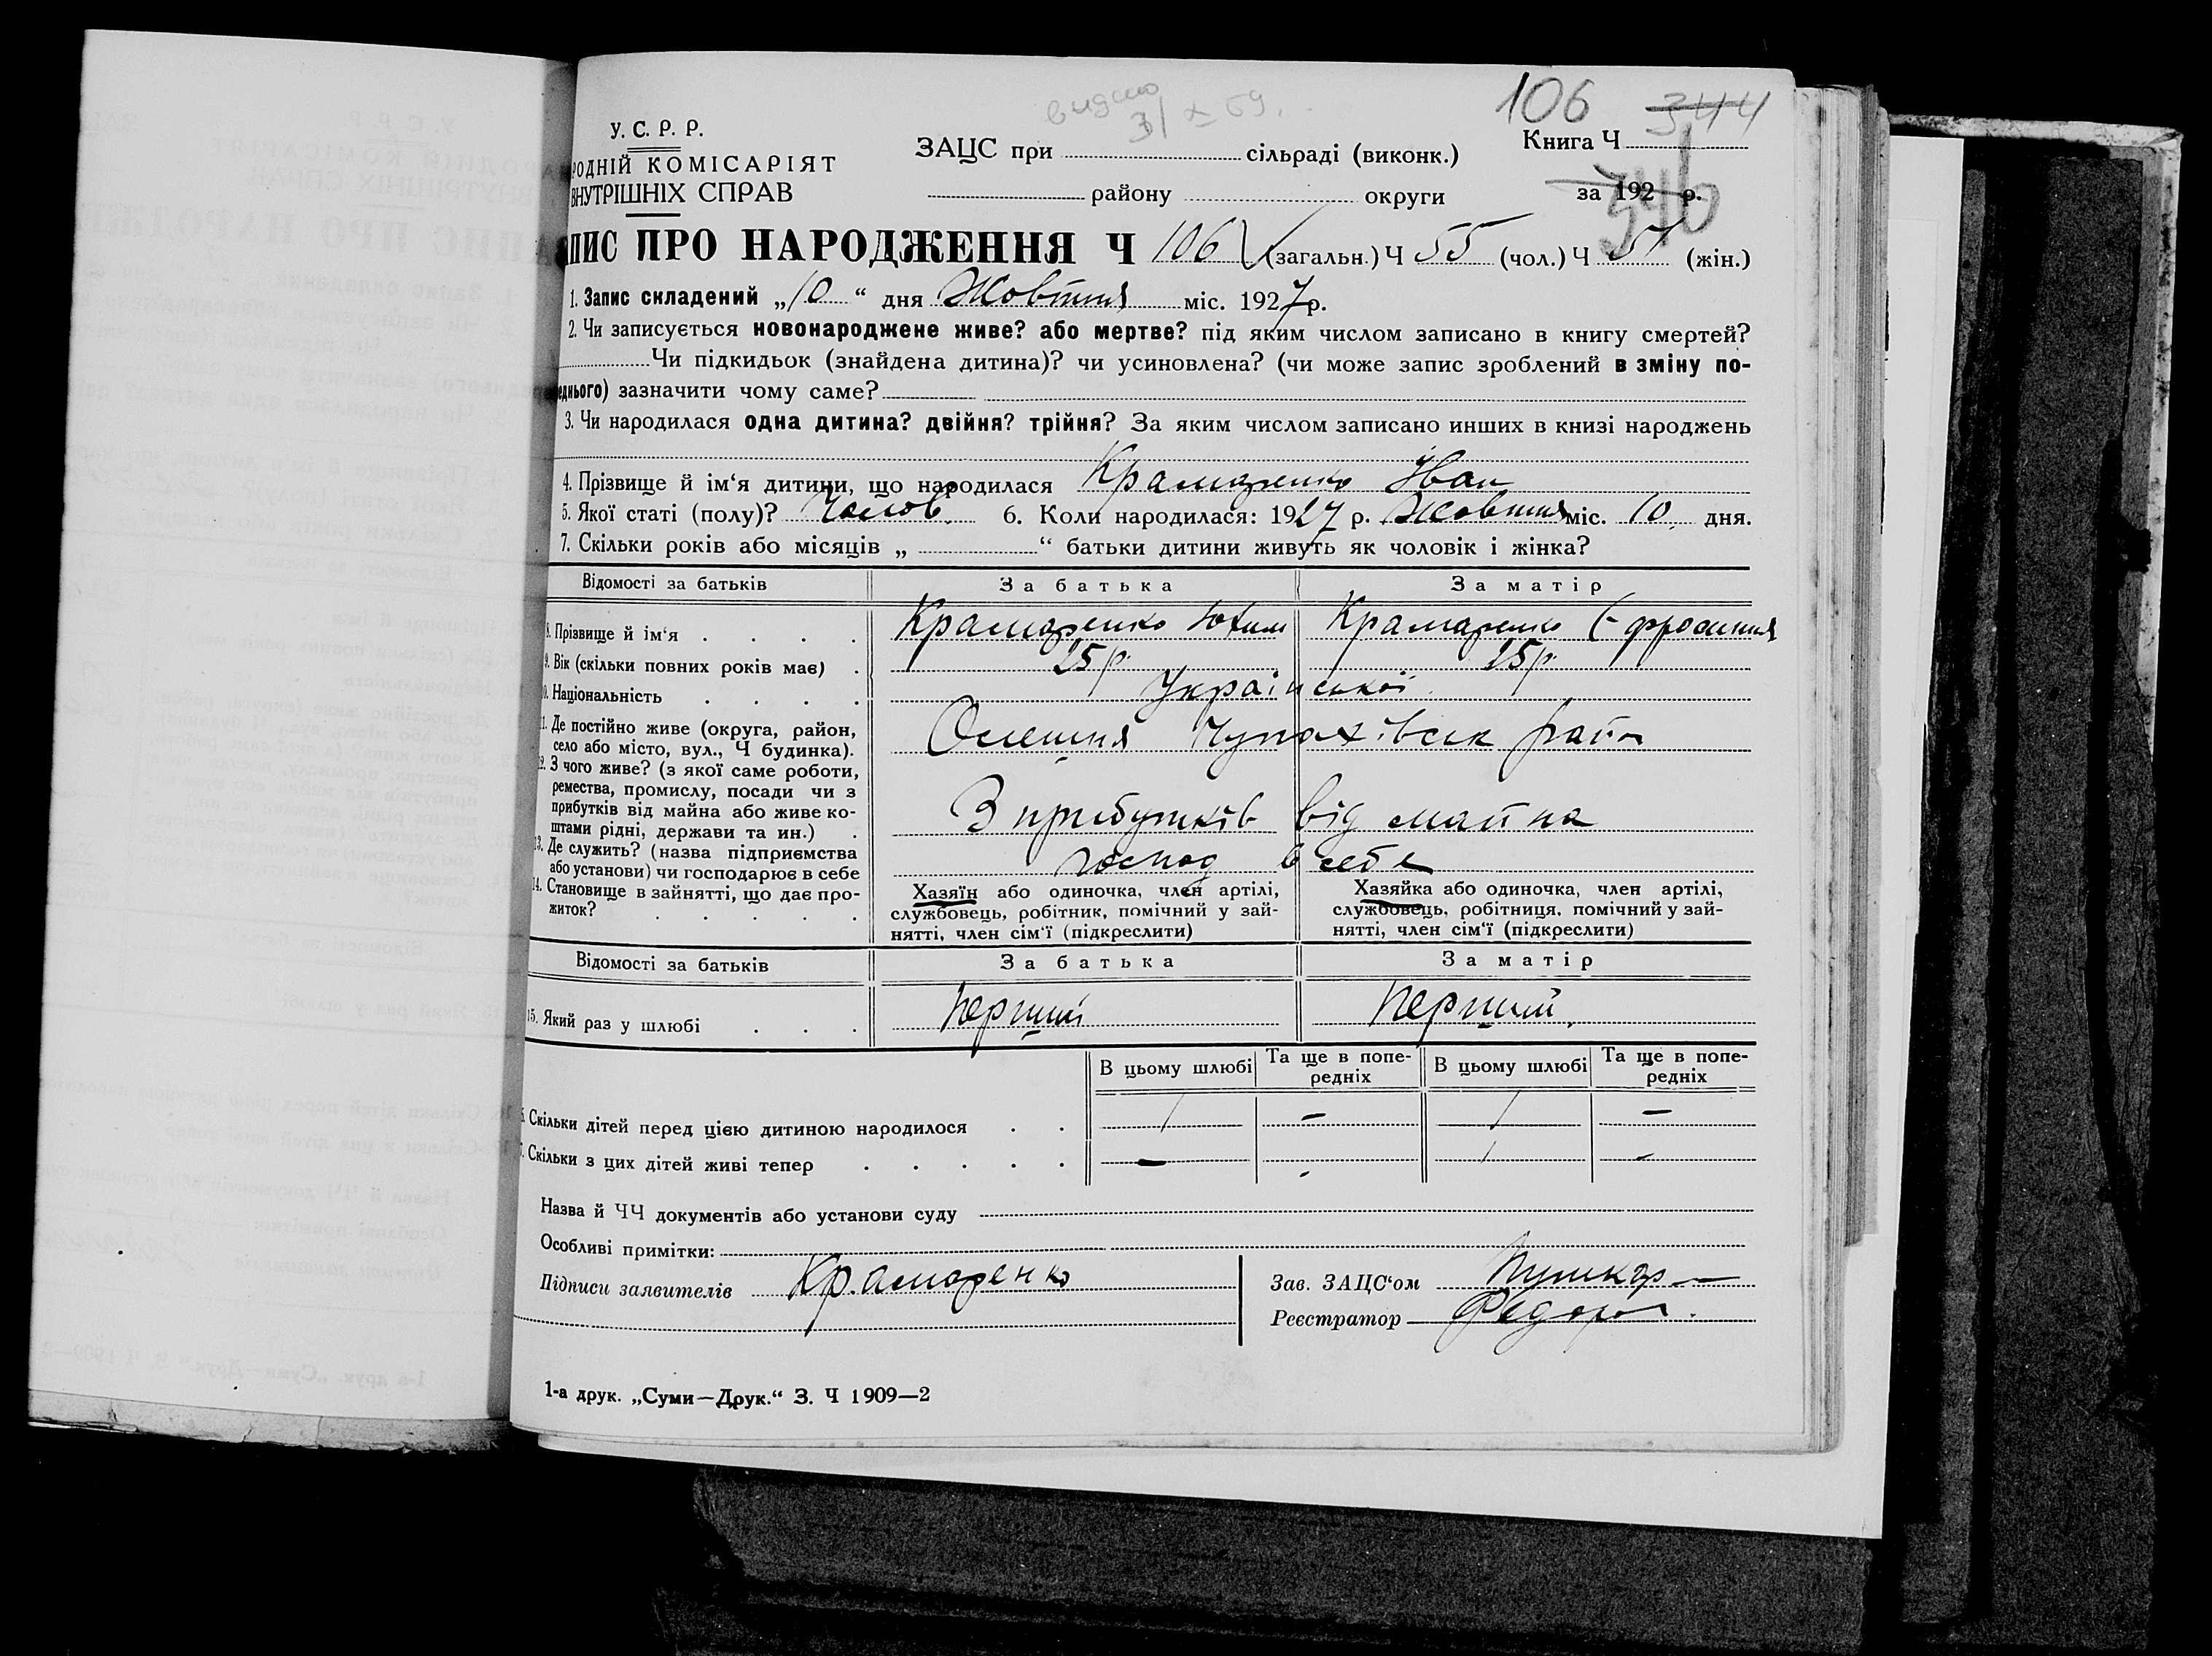 видано
31 X 59.
106 344
346
У. С. Р. Р.
РОДНІЙ КОМІСАРІЯТ
ВНУТРІШНІХ СПРАВ
ЗАЦС при сільраді (виконк.)
району округи
Книга Ч
за 192 р.
ПИС ПРО НАРОДЖЕННЯ Ч 106 (загальн.) Ч 55 (чол.) Ч 51 (жін.)
1. Запис складений „10“ дня Жовтня міс. 1927 р.
2. Чи записується новонароджене живе? або мертве? під яким числом записано в книгу смертей?
Чи підкидьок (знайдена дитина)? чи усиновлена? (чи може запис зроблений в зміну по-
еднього) зазначити чому саме?
3. Чи народилася одна дитина? двійня? трійня? За яким числом записано инших в книзі народжень
4. Прізвище й ім‘я дитини, що народилася Крамаренко Іван
5. Якої статі (полу)? Чолов. 6. Коли народилася: 1927 р. Жовтня міс. 10 дня.
7. Скільки років або місяців „ “ батьки дитини живуть як чоловік і жінка?
Відомості за батьків За батька За матір
8. Прізвище й ім‘я . . . . Крамаренко Юхим Крамаренко Єфросиння
9. Вік (скільки повних років має) . 25 р. 25 р.
0. Національність . . . . Української
11. Де постійно живе (округа, район,
село або місто, вул., Ч будинка). Олешня Чупахівськ район
12. З чого живе? (з якої саме роботи,
ремества, промислу, посади чи з
прибутків від майна або живе ко-
штами рідні, держави та ин.) . З прибутків від майна
13. Де служить? (назва підприємства
або установи) чи господарює в себе господ в себе
14. Становище в зайнятті, що дає про-
житок? . . . .
Хазяїн або одиночка, член артілі,
службовець, робітник, помічний у зай-
нятті, член сім‘ї (підкреслити)
Хазяйка або одиночка, член артілі,
службовець, робітниця, помічний у зай-
нятті, член сім‘ї (підкреслити)
Відомості за батьків За батька За матір
15. Який раз у шлюбі . . . Перший Перший.
В цьому шлюбі Та ще в попе-
редніх В цьому шлюбі Та ще в попе-
редніх
6. Скільки дітей перед цією дитиною народилося . . 1 – 1 –
7. Скільки з цих дітей живі тепер . . . . . – - 1 -
Назва й ЧЧ документів або установи суду
Особливі примітки:
Підписи заявителів Крамаренко
Зав. ЗАЦС‘ом Пушкар
Реєстратор
1-а друк. „Суми—Друк.“ З. Ч 1909—2